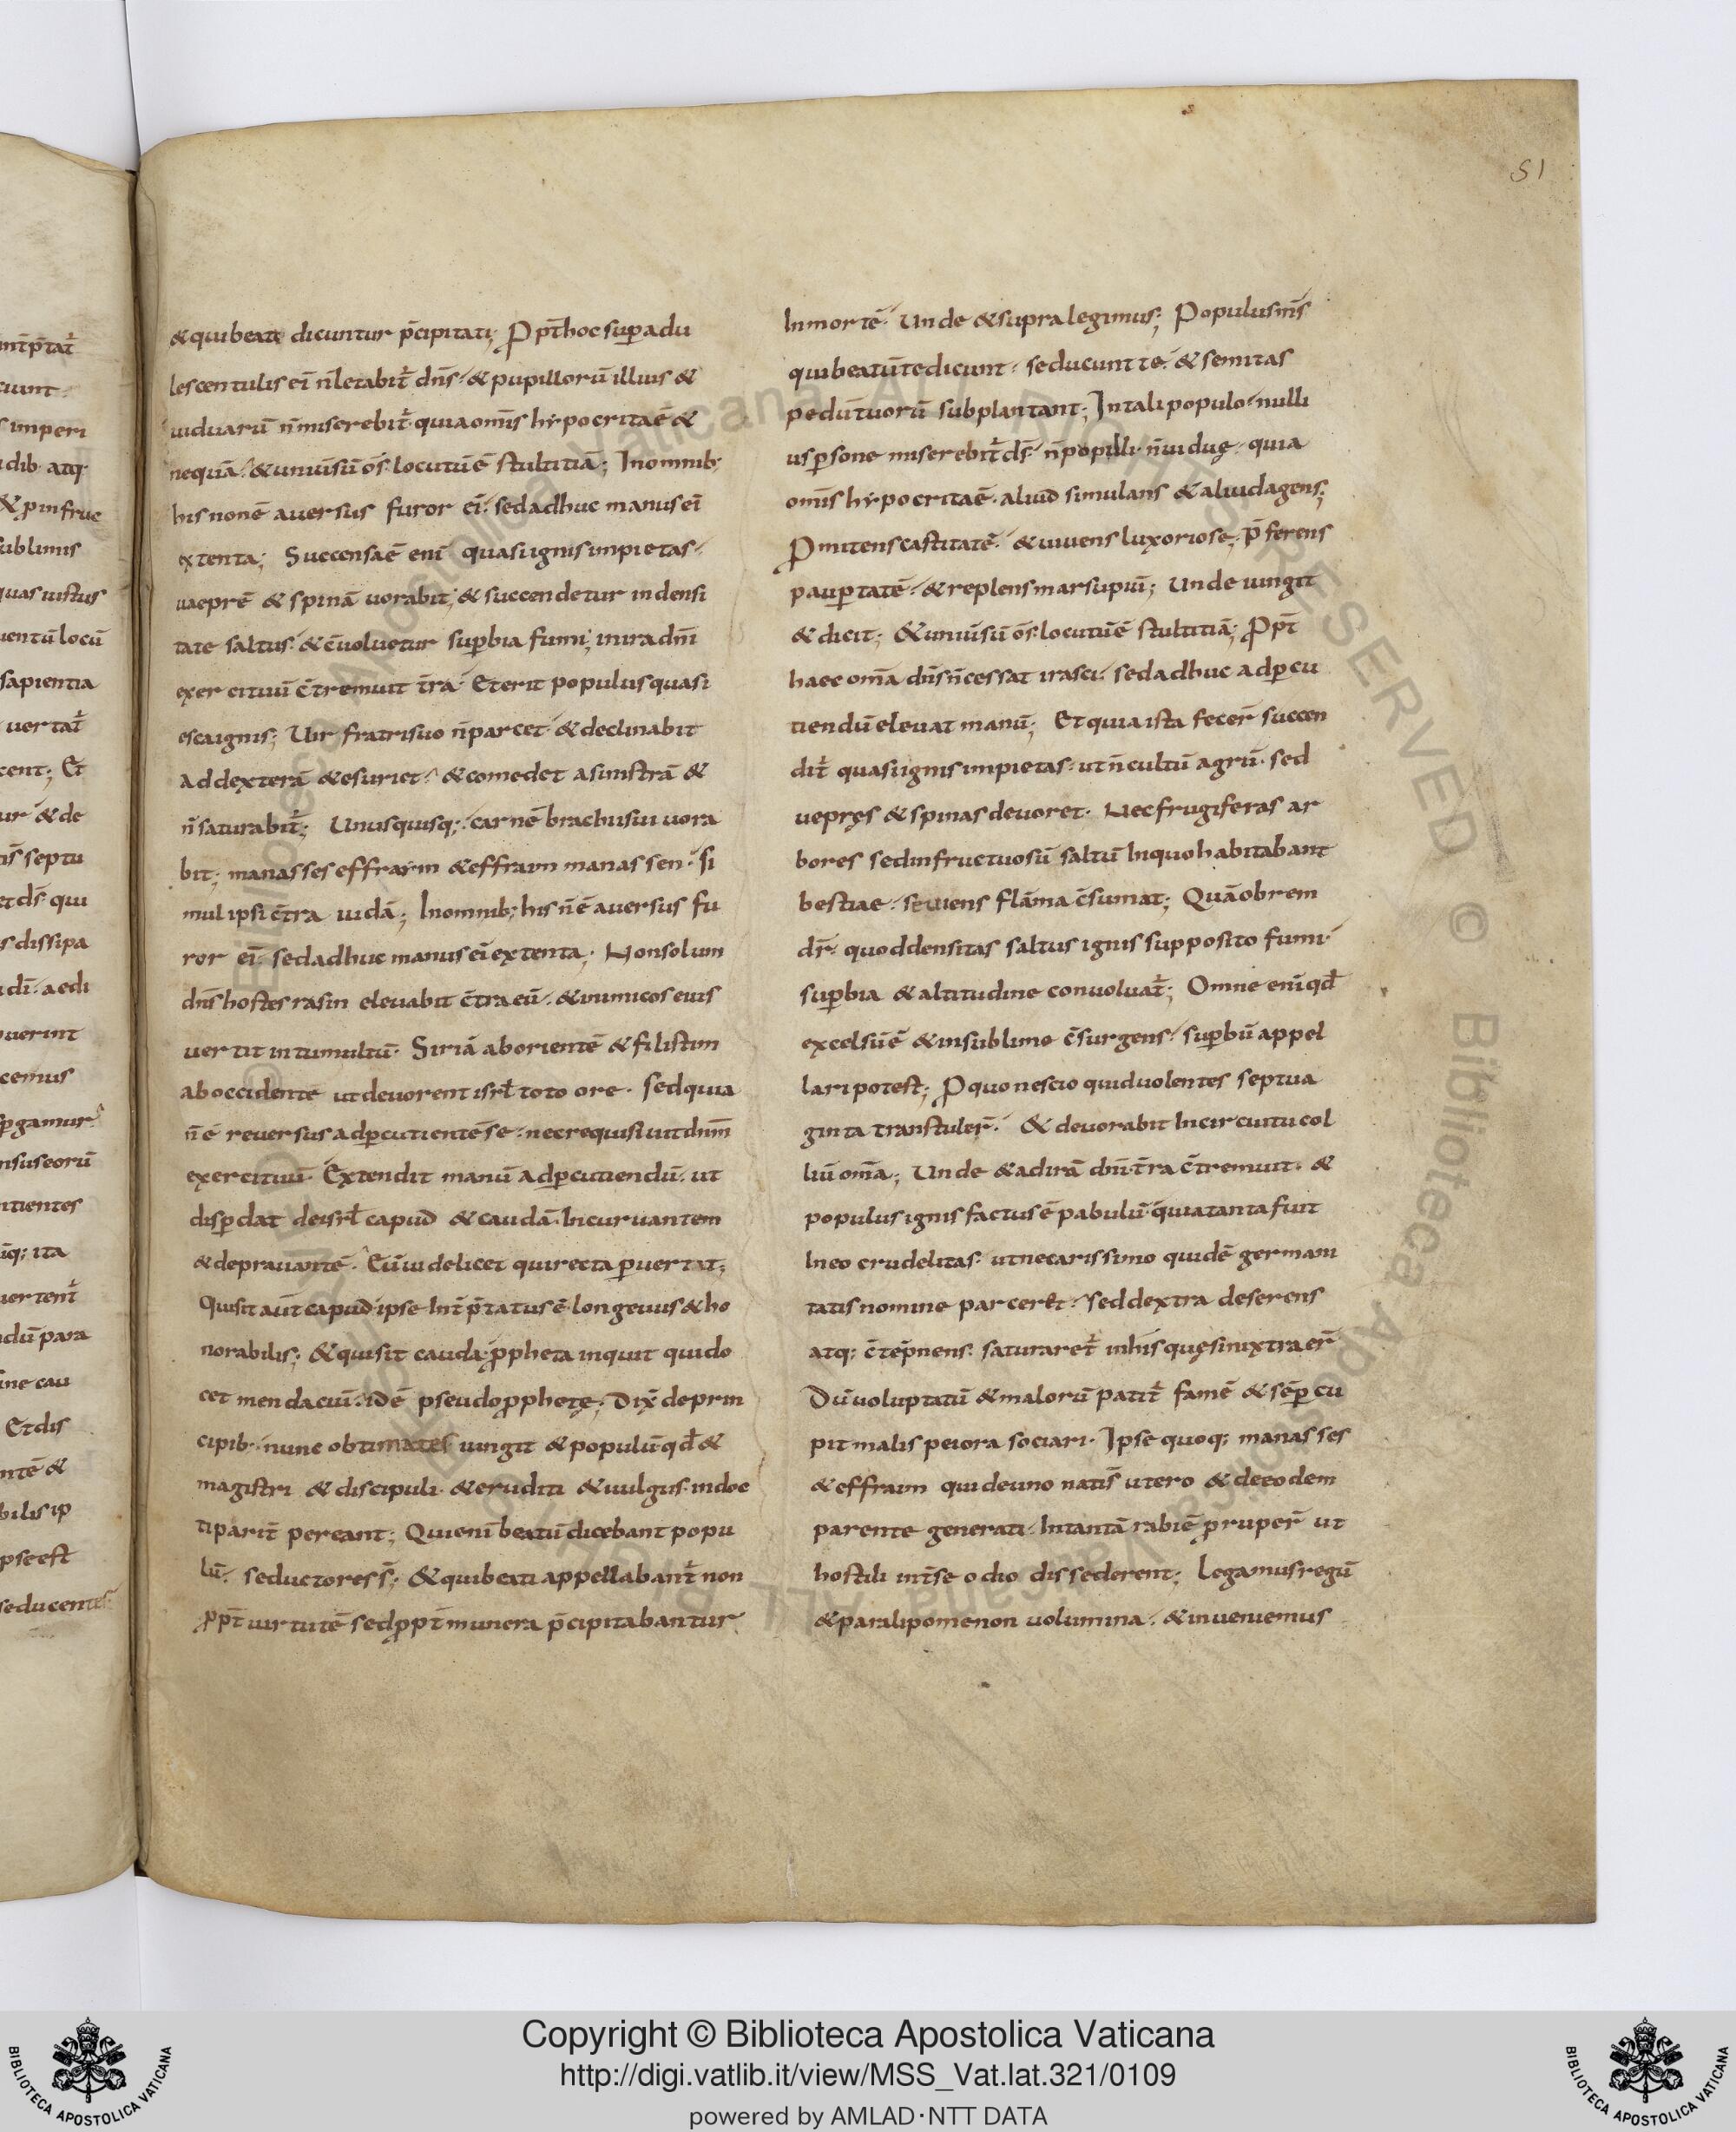 51
& qui beate dicuntur p̄cipitati; Ꝓpt̄ hoc sup adu
lescentulis ei n̄ letabit̄ dn̄s & pupillorū illius &
uiduarū n̄ miserebit̄ quia om̄s hypocrita ē &
nequā & uniuisū os locutū ē stultitiā; In omnib;
his non ē auersus furor ei sed adhuc manus ei
extenta; Succensa ē eni quasi ignis impietas
uaeprē & spinā uorabit & succendetur in densi
tate saltus & c̄uoluetur supbia fumi; in ira dn̄i
exercituū c̄tremuit t̄ra Et erit populus quasi
esca ignis; Uir fratri suo n̄ parcet & declinabit
ad dexterā & esuriet & comedet a sinistrā &
n̄ saturabit̄; Unusquisq; carnē brachii sui uora
bit; manasses effraym & effraim manassen si
mul ipsi c̄tra iudā; In omnib; his n̄ ē auersus fu
ror ei sed adhuc manus ei extenta. Non solum
dn̄s hostes rasin eleuabit c̄tra eū & inimicos eius
uertit in tumultū Siriā ab orientē & filistim
ab occidente ut deuorent isrł toto ore. sed quia
n̄ ē reuersus ad pcutientē se nec requisiuit dnm̄
exercituū Extendit manū ad pcutiendū ut
dispdat de isrł capud & caudā Incuruantem
& deprauantē Eū uidelicet qui recta puertat;
Quis it aut capud ipse Int̄p̄tatus ē longeuus & ho
norabilis; & quis it cauda ꝓpheta inquit qui do
cet mendaciū idē pseudoꝓphetę; Dix̄ de prin
cipib nunc obtimates iungit & populū qđ &
magistri & discipuli & eruditi & uulgus indoc
ti parit̄ pereant; Qui eni beatū dicebant popu
lū seductores s̄; & qui beati appellabant̄ non
ꝓpt̄ uirtutē sed ꝓpt̄ munera p̄cipitabantur
In mortē Unde & supra legimus; Populus m̄s
qui beatū te dicunt seducunt te & semitas
pedū tuorū subplantant; In tali populo nulli
us psone miserebit̄ ds̄ n̄ popilli n̄ uiduę quia
om̄s hypocrita ē aliud simulans & aliud agens;
Pmitens castitatē & uiuens luxoriose p̄ferens
paupertatē & replens marsupiū; Unde iungit
& dicit; & uniuisū os locutū ē stultitiā; Ꝓpt̄
haec om̄a dn̄s n̄ cessat irasci sed adhuc ad pcu
tiendū eleuat manū; Et quia ista fecer̄ succen
dit̄ quasi ignis impietas ut n̄ cultū agrū sed
ueprȩs & spinas deuoret. Nec frugiferas ar
bores sed infructuosū saltū In quo habitabant
bestiae seuiens flāma c̄sumat; Quā obrem
dr̄ quod densitas saltus ignis supposito fumi
supbia & altitudine conuoluat̄; Omne enī qđ
excelsū ē & in sublime c̄surgens supbū appel
lari potest; Ꝓ quo nescio quid uolentes septua
ginta transtuler̄ & deuorabit In circuitu col
liū om̄a; Unde & ad irā dn̄i t̄ra c̄tremuit &
populus ignis factus ē pabulū quia tanta fuit
In eo crudelitas ut nec arissimo quidē germani
tatis nomine parceret sed dextra deserens
atq; c̄tep̄nens saturaret̄ in his quę sinixtra er̄
Dū uoluptatū & malorū patit̄ famē & sēp cu
pit malis peiora sociari. Ipse quoq; manasses
& effraim qui de uno natis utero & de eodem
parente generati In tantā rabiē ꝓruper̄ ut
hostili int̄ se odio dissederent; Legamus regū
& paralipomenon uolumina & inueniemus
Copyright © Biblioteca Apostolica Vaticana
http://digi.vatlib.it/view/MSS_Vat.lat.321/0109
powered by AMLAD·NTT DATA
BIBLIOTECA APOSTOLICA VATICANA
BIBLIOTECA APOSTOLICA VATICANA